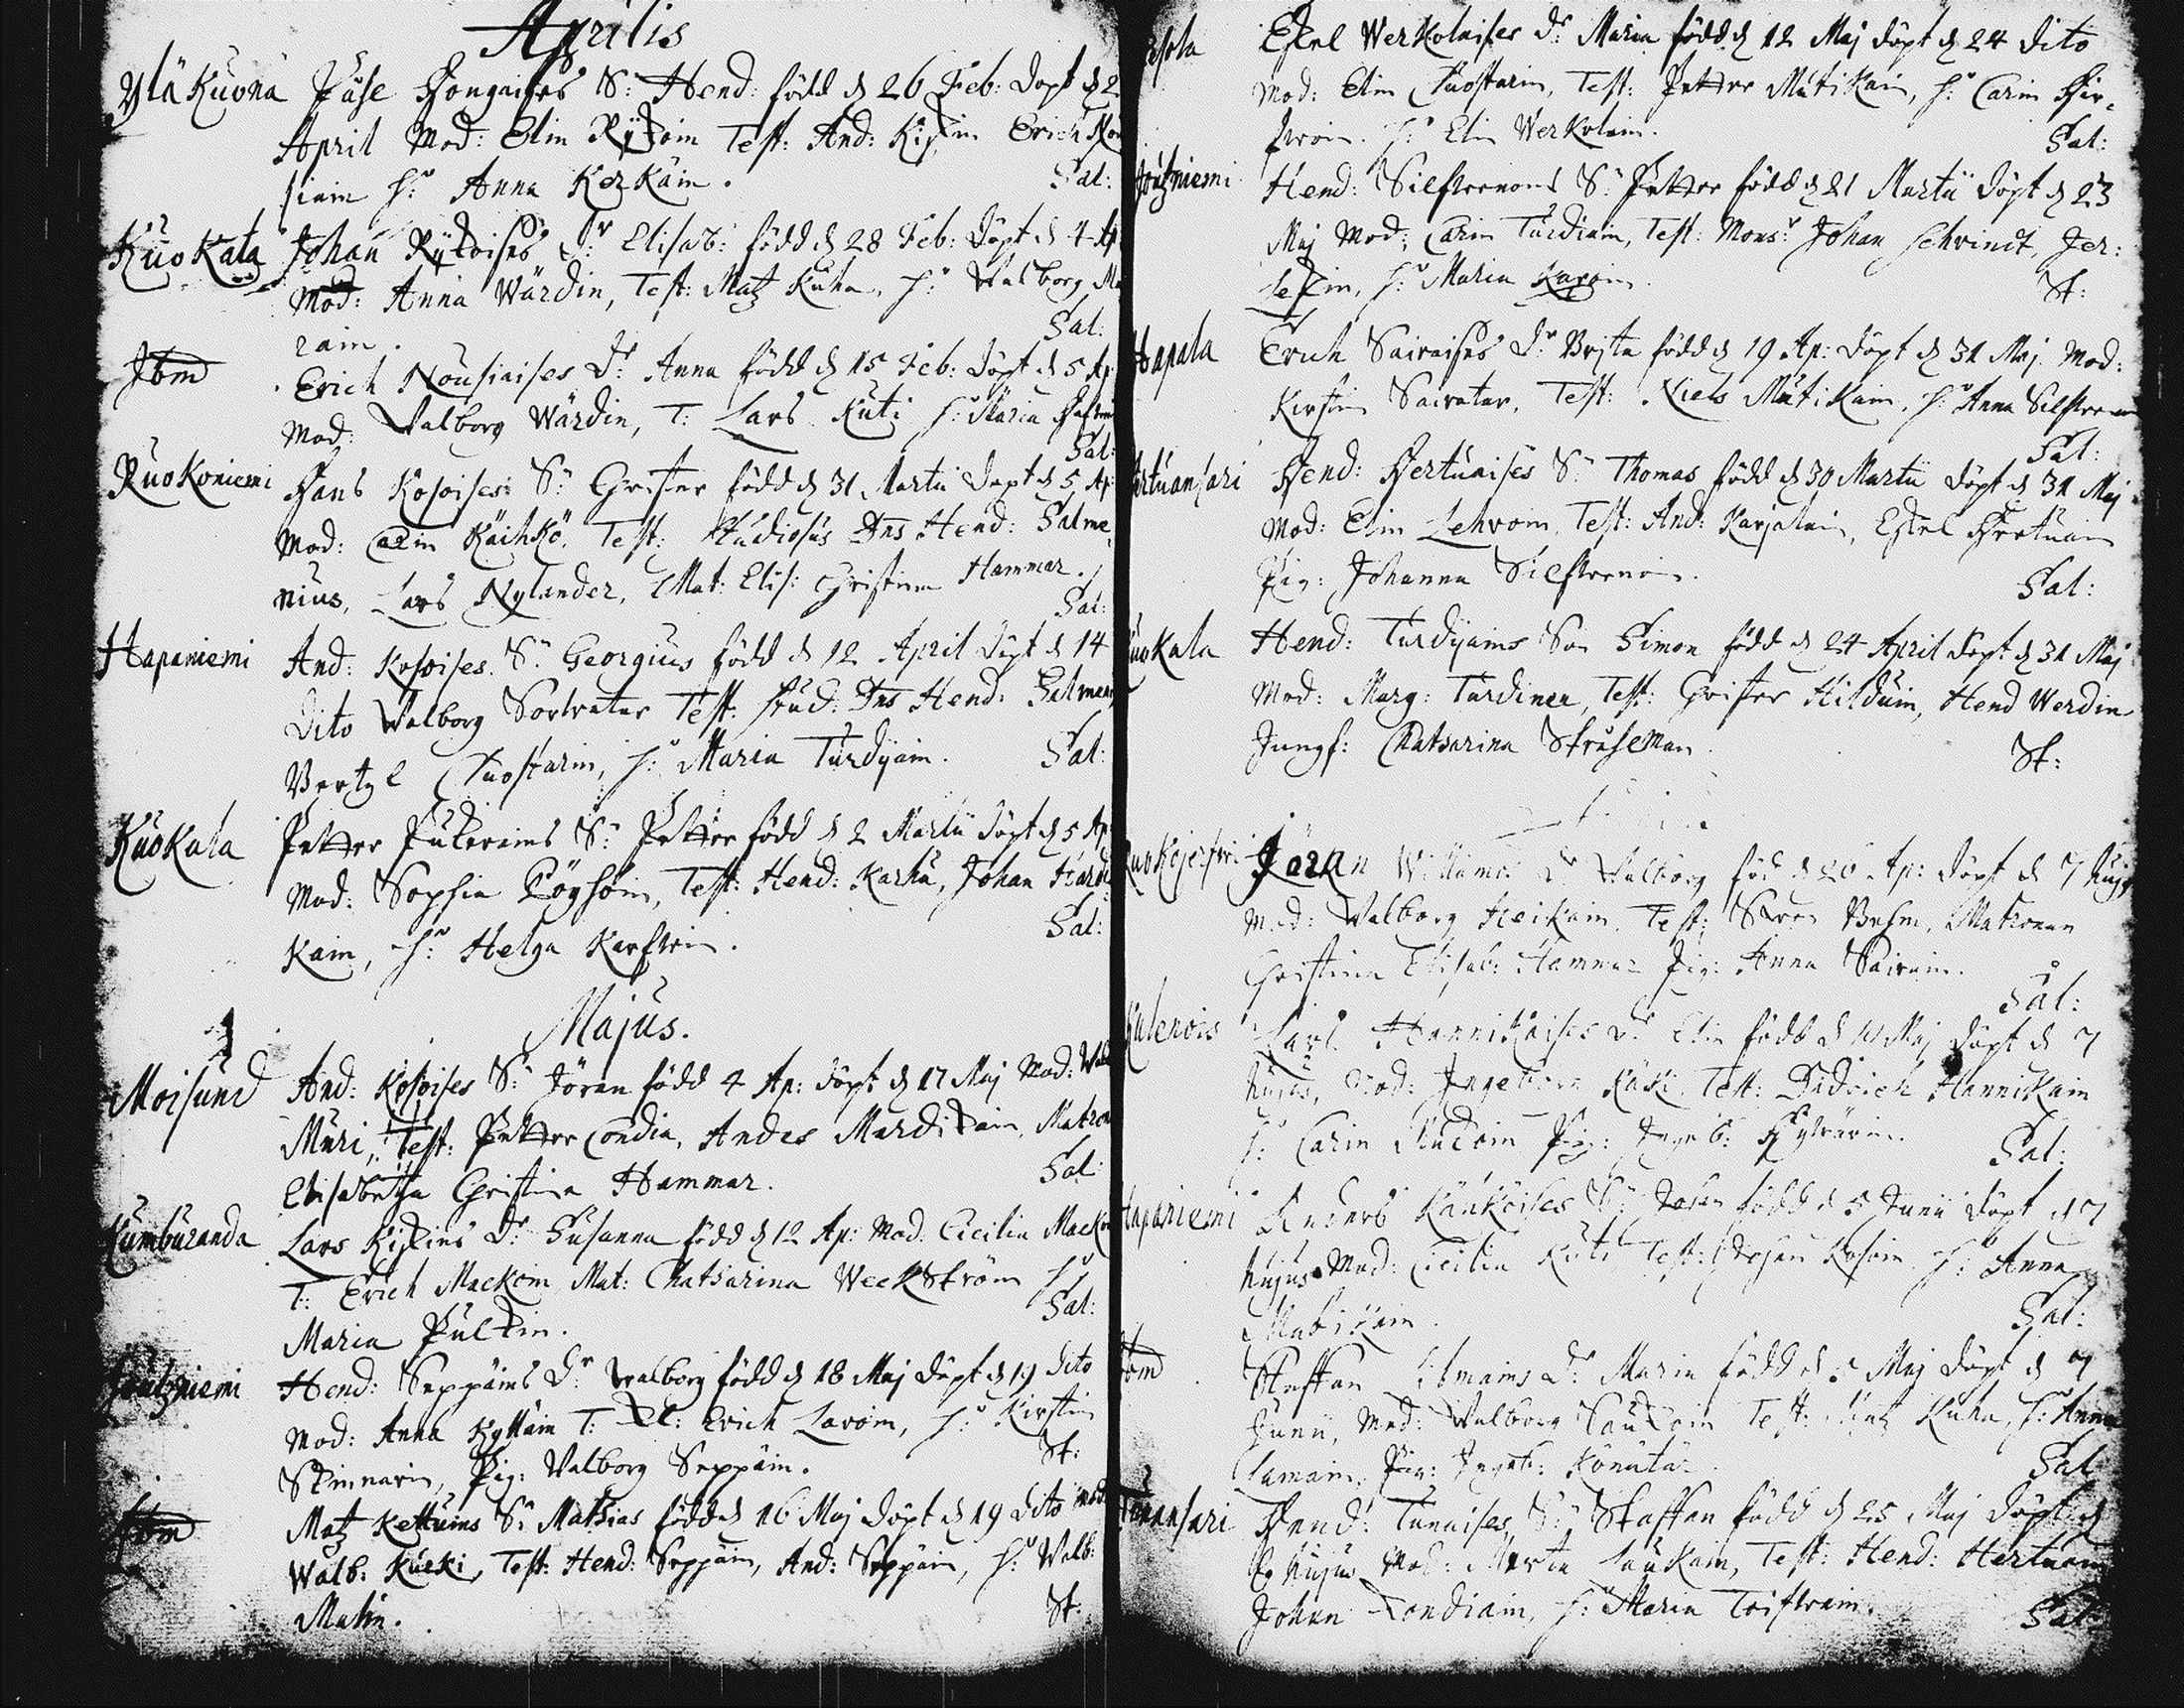 Aprilis
Ylä Kuona Påhl Hongaises S: Hend: född d 26 Feb: döpt d 2
April Mod: Elin Rÿkoin Test: And: Kiskin Erich Nou
siain h:u Anna Kerkäin. Sal:
Kuokala Johan Rÿkoises D:r Elisab: född d 28 Feb: döpt d 4 Ap
Mod: Anna Wärdin, Test: Matz Kuha, h:u Walborg Mu
rain. Sal:
Ibm Erich Nousiaises D:r Anna född d 15 Feb: döpt d 5 Ap
Mod: Walborg Wärdin, T: Lars Kuti h:u Maria
Sal:
Ruokoniemi Hans Kosoises S:n Christer född d 31 Martii döpt d 5 Ap:
Mod: Carin Käihkö, Test: Studiosus Dns Hend: Salme
nius, Lars Nylander, Mat: Elis: Christina Hammar.
Sal:
Hapaniemi And: Kosoises S:n Georgius född d 12 April döpt d 14
Dito Walborg Sorvatar Test: Stud: Dns Hend: Salmen
Bertel Suostarin, h:u Maria Turdÿain. Sal:
Kuokala Petter Pulkrains S:n Petter född d 2 Martii döpt d 5 Ap
Mod: Sophia Pöyhöin, Test: Hend: Karhu, Johan Hardi
kain, h:u Helga Karhuin. Sal:
Majus.
Moisund And: Kosoises S:n Jöran född 4 Ap: döpt d 17 Maj Mod: Walb
Muri, Test: Petter Condia, Andes Murdikain, Matron
Elisabetha Christina Hammar. Sal:
Kumburanda Lars Kiskins D:r Susanna född d 12 Ap: Mod: Cicilia Macko
T: Erich Mackoin Mat: Chatharina Weckström h:u
Maria Pulkin. Sal:
Joutzniemi Hend: Seppäins D:r Walborg född d 18 Maj döpt d 19 dito
Mod: Anna Kyttäin T: Erich Lavoin, h:u Kirstin
Skinnarin, Pig: Walborg Seppäin. St:
Ibm Matz Kettuins S:n Mathias född d 16 Maj döpt d 19 dito Mod:
Walb: Kurki, Test: Hend: Seppäin, And: Seppäin, h:u Walb:
Malin. St:
Eskel Werkolaises D:r Maria född d 12 Maj döpt d 24 dito
Mod: Elin Suostarin, Test: Petter Mutikain, h:u Carin Hir-
woin. h:u Elin Werkolain. Sal:
Joutzniemi Hend: Silfwenoins S:n Petter född d 21 Martii döpt d 23
Maj Mod: Carin Turdiain, Test: Mons:r Johan Schvindt, Jer:
Leskin, h:u Maria Karoin. St:
Hapala Erich Sairaises D:r Brjta född d 19 Ap: döpt d 31 Maj Mod:
Kirstin Sairatar, Test: Niels Mutikain, h:u Anna Silfwenoin
Sal:
Hertuansari Hend: Hertuaises S:n Thomas född d 30 Martii döpt d 31 Maj
Mod: Elin Lehvoin, Test: And: Karjalain, Eskel Hertuain
Pig: Johanna Silfwenoin. Sal:
Kuokala Hend: Turdÿains Son Simon född d 24 April döpt d 31 Maj
Mod: Marg: Turdinen, Test: Christer Hilduin, Hend Werdin
Jungf: Chatharina Stråhlman. St:
Ruokojerfwi Jöran Willuins D:r Walborg föd d 26 Ap: döpt d 7 hujs
Mod: Walborg Heikain, Test: Sven Brehm, Matronan
Christina Elisab: Hammar Pig: Anna Sairain.
Sal:
Lars Hannikaises D:r Elin född d Maj döpt d 7
hujus, Mod: Ingeborg Käki, Test: Didrich Hannikain
h:u Carin Rudoin Pig: Ingeb: Hyvärin. Sal:
Hapaniemi Anders Kaukoises S:n Johan född d 5 Junii döpt d 7
hujus Mod: Cicilia Kuti Test: Johan Kosoin h:u Anna
Sal:
Ibm Staffan D:r Maria född d Maj döpt d 7
Junii, Mod: Walborg Saukoin Test: Matz Kuha, h:u Anna
Pig: Ingeb: Konutar. Sal:
Tunansari Hend: Tunaises S:n Staffan född d 25 Maj döpt d
hujus Mod: Marta Laukain, Test: Hend: Hertuain
Johan Londiain, h:u Maria Toiswain. Sal: